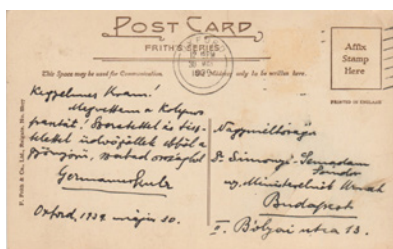 POST CARD
FRITH'S SERIES
This Space may be used for Communication.
only to be written here.
Affix
Stamp
Here
PRINTED IN ENGLAND
F. Frith & Co., Ltd., Reigate.
Kegyelmes Uram!
Megvettem a
Szeretettel és
üdvözöllek ebből a
gyönyörű, szabad országból
Germanus Gyula
Oxford, 1937. május 20.
Nagyméltóságú
Dr. Simonyi-Semadam
Sándor
ny. Miniszterelnök Úrnak
Budapest
I. Bólyai utca 13.